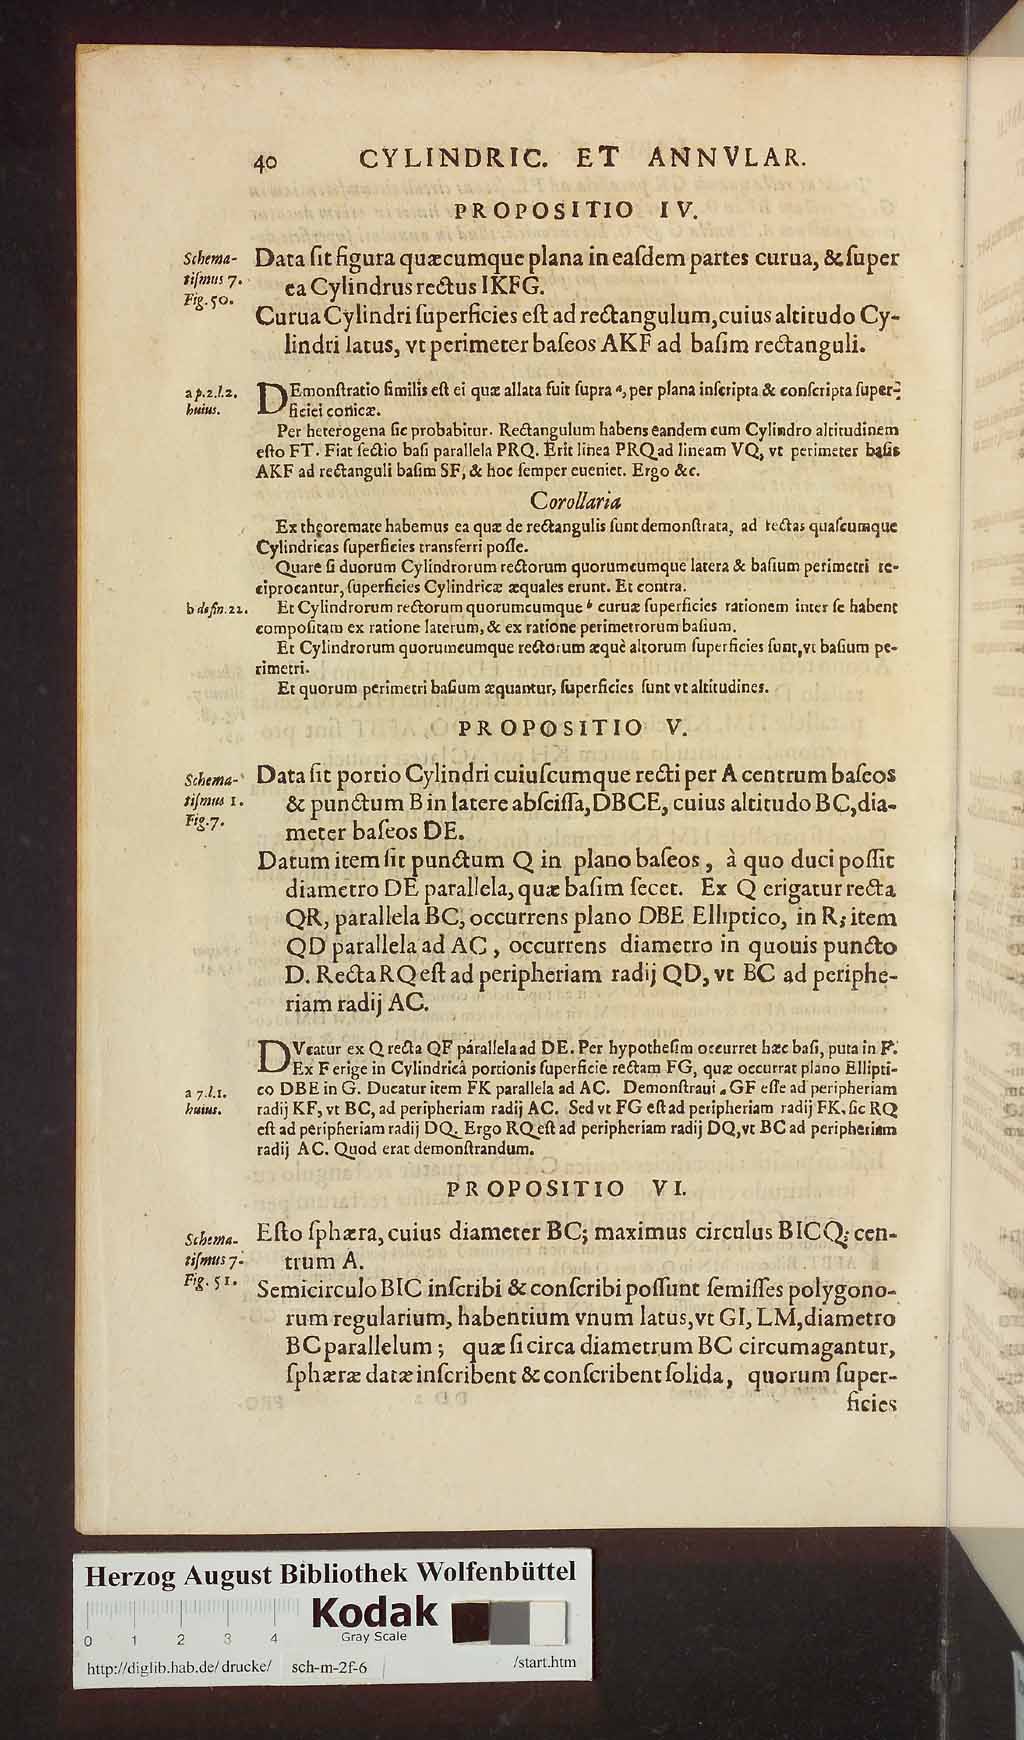 40 CYLINDRIC. ET ANNVLAR.
PROPOSITIO IV.
Schema-
tiſmus 7.
Fig. 50.
Data ſit figura quæcumque plana in eaſdem partes curua, & ſuper
ea Cylindrus rectus IKFG.
Curua Cylindri ſuperficies eſt ad rectangulum, cuius altitudo Cy-
lindri latus, vt perimeter baſeos AKF ad baſim rectanguli.
a p.2.l.2.
huius.
DEmonſtratio ſimilis eſt ei quæ allata fuit ſupra a, per plana inſcripta & conſcripta ſuper-
ficiei conicæ.
Per heterogena ſic probabitur. Rectangulum habens eandem cum Cylindro altitudinem
eſto FT. Fiat ſectio baſi parallela PRQ. Erit linea PRQ ad lineam VQ, vt perimeter baſis
AKF ad rectanguli baſim SF, & hoc ſemper eueniet. Ergo &c.
Corollaria
Ex theoremate habemus ea quæ de rectangulis ſunt demonſtrata, ad rectas quaſcumque
Cylindricas ſuperficies transferri poſſe.
Quare ſi duorum Cylindrorum rectorum quorumcumque latera & baſium perimetri re-
ciprocantur, ſuperficies Cylindricæ æquales erunt. Et contra.
b defin. 22.
Et Cylindrorum rectorum quorumcumque b curuæ ſuperficies rationem inter ſe habent
compoſitam ex ratione laterum, & ex ratione perimetrorum baſium.
Et Cylindrorum quorumcumque rectorum æquè altorum ſuperficies ſunt, vt baſium pe-
rimetri.
Et quorum perimetri baſium æquantur, ſuperficies ſunt vt altitudines.
PROPOSITIO V.
Schema-
tiſmus 1.
Fig. 7.
Data ſit portio Cylindri cuiuſcumque recti per A centrum baſeos
& punctum B in latere abſciſſa, DBCE, cuius altitudo BC, dia-
meter baſeos DE.
Datum item ſit punctum Q in plano baſeos, à quo duci poſſit
diametro DE parallela, quæ baſim ſecet. Ex Q erigatur recta
QR, parallela BC, occurrens plano DBE Elliptico, in R; item
QD parallela ad AC, occurrens diametro in quouis puncto
D. Recta RQ eſt ad peripheriam radij QD, vt BC ad periphe-
riam radij AC.
a 7.l.1.
huius.
DVcatur ex Q recta QF parallela ad DE. Per hypotheſim occurret hæc baſi, puta in F.
Ex F erige in Cylindrica portionis ſuperficie rectam FG, quæ occurrat plano Ellipti-
co DBE in G. Ducatur item FK parallela ad AC. Demonſtraui a GF eſſe ad peripheriam
radij KF, vt BC, ad peripheriam radij AC. Sed vt FG eſt ad peripheriam radij FK, ſic RQ
eſt ad peripheriam radij DQ. Ergo RQ eſt ad peripheriam radij DQ, vt BC ad peripheriam
radij AC. Quod erat demonſtrandum.
PROPOSITIO VI.
Schema-
tiſmus 7.
Fig. 51.
Eſto ſphæra, cuius diameter BC; maximus circulus BICQ; cen-
trum A.
Semicirculo BIC inſcribi & conſcribi poſſunt ſemiſſes polygono-
rum regularium, habentium vnum latus, vt GI, LM, diametro
BC parallelum; quæ ſi circa diametrum BC circumagantur,
ſphæræ datæ inſcribent & conſcribent ſolida, quorum ſuper-
ficies
Herzog August Bibliothek Wolfenbüttel
Kodak
Gray Scale
0 1 2 3 4
http://diglib.hab.de/drucke/ sch-m-2f-6 /start.htm